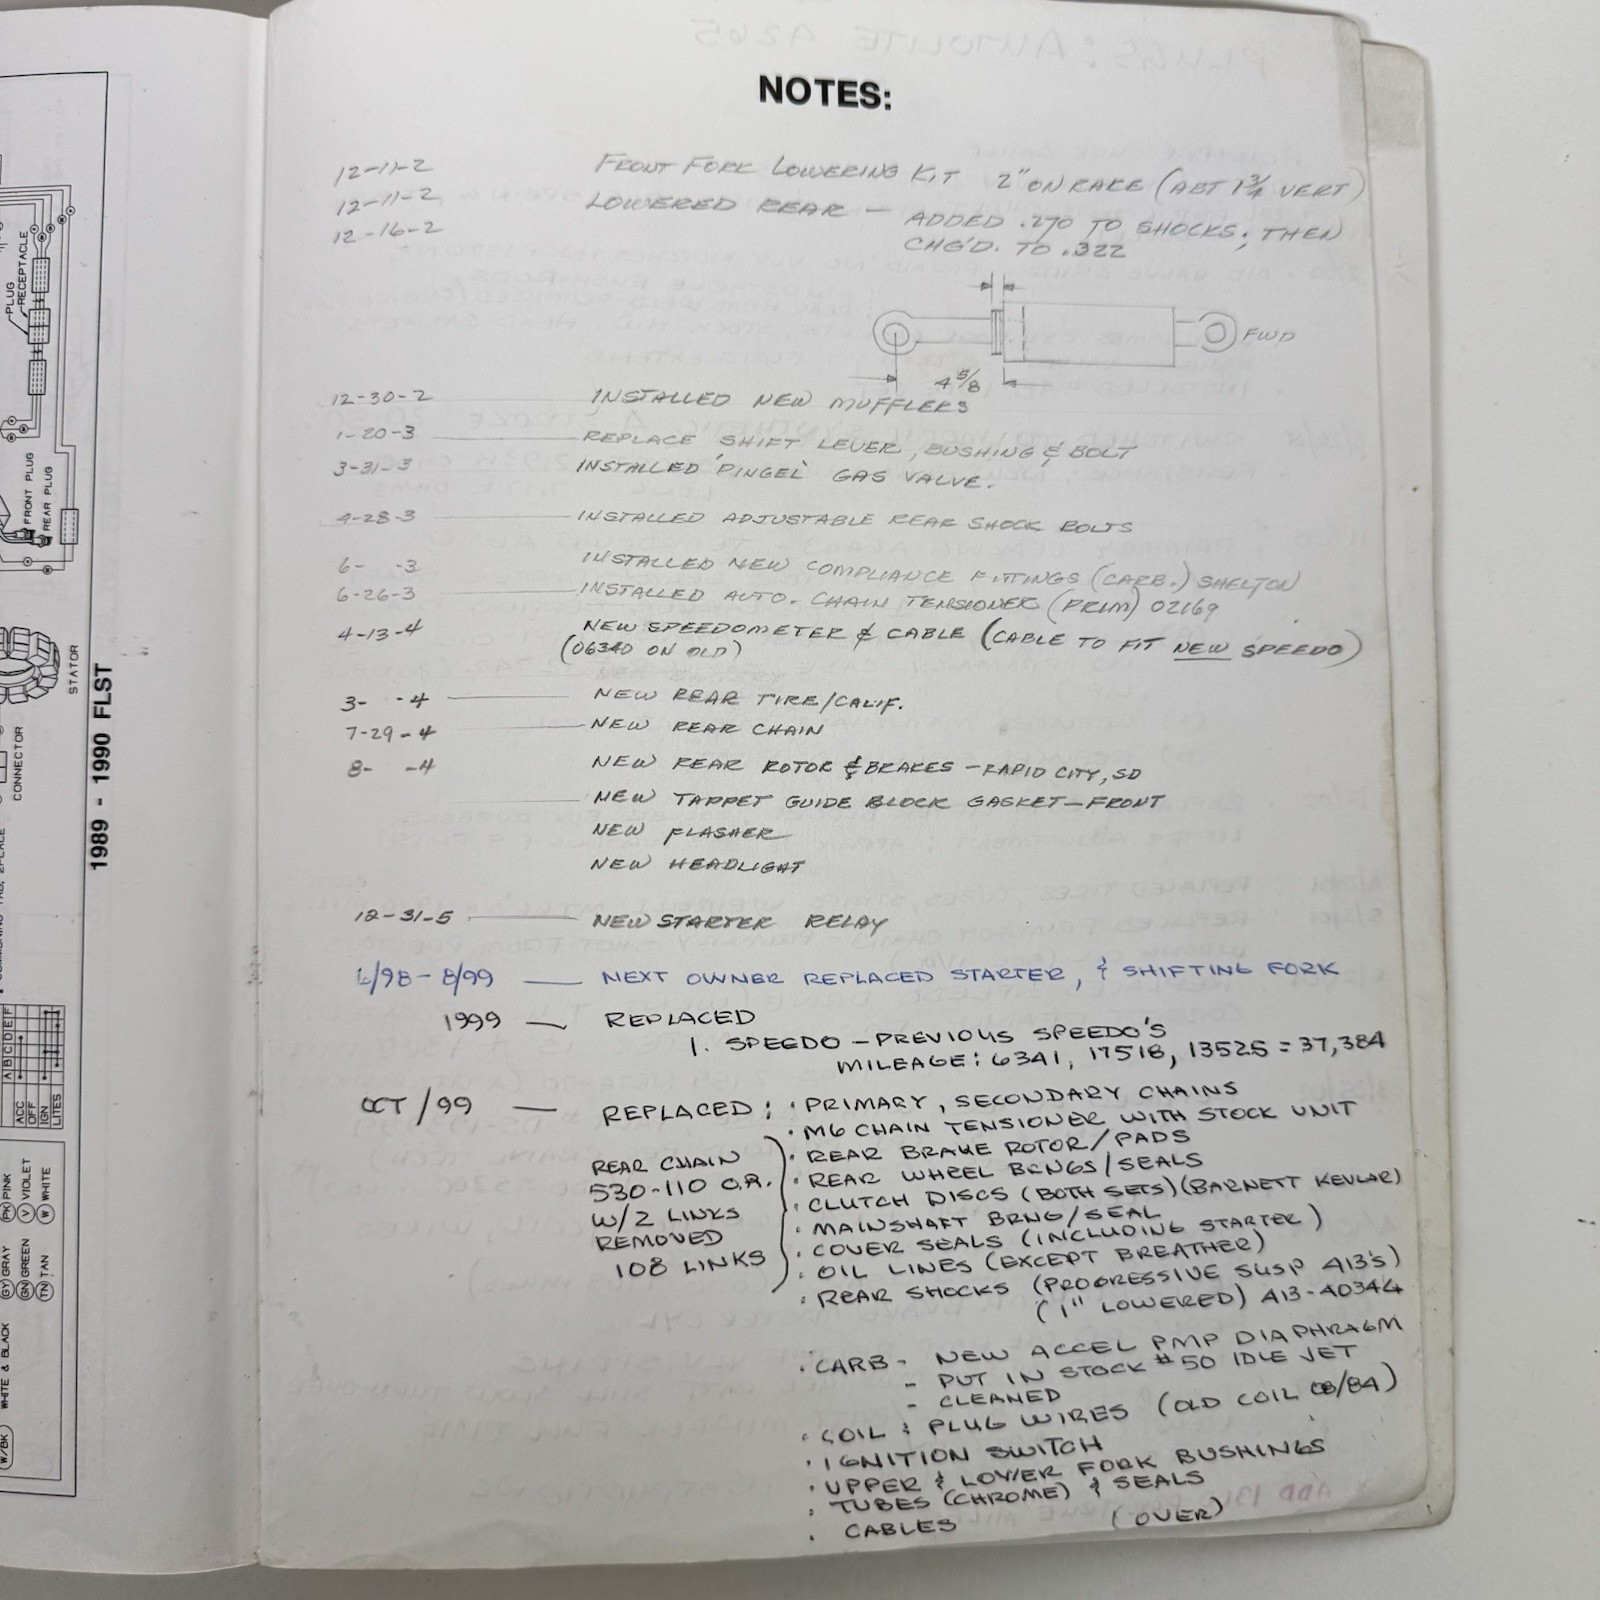 NOTES:
12-11-2 FRONT FORK LOWERING KIT 2" ON RAKE (ABT 1 3/4 VERT)
12-11-2 LOWERED REAR — ADDED .270 TO SHOCKS; THEN
12-16-2 CHG'D. TO .322
FWD
4 5/8
12-30-2 INSTALLED NEW MUFFLERS
1-20-3 REPLACE SHIFT LEVER, BUSHING & BOLT
3-31-3 INSTALLED 'PINGEL' GAS VALVE.
4-28-3 INSTALLED ADJUSTABLE REAR SHOCK BOLTS
6- -3 INSTALLED NEW COMPLIANCE FITTINGS (CARB.) SHELTON
6-26-3 INSTALLED AUTO. CHAIN TENSIONER (PRIM) 02169
4-13-4 NEW SPEEDOMETER & CABLE (CABLE TO FIT NEW SPEEDO)
(06340 ON OLD)
3- -4 NEW REAR TIRE/CALIF.
7-29-4 NEW REAR CHAIN
8- -4 NEW REAR ROTOR & BRAKES – RAPID CITY, SD
NEW TAPPET GUIDE BLOCK GASKET—FRONT
NEW FLASHER
NEW HEADLIGHT
12-31-5 NEW STARTER RELAY
6/98 - 8/99 — NEXT OWNER REPLACED STARTER, & SHIFTING FORK
1999 — REPLACED
1. SPEEDO – PREVIOUS SPEEDO'S
MILEAGE: 6341, 17518, 13525 = 37,384
OCT/99 — REPLACED: · PRIMARY, SECONDARY CHAINS
· M6 CHAIN TENSIONER WITH STOCK UNIT
· REAR BRAKE ROTOR/PADS
· REAR WHEEL BRNGS/SEALS
· CLUTCH DISCS (BOTH SETS) (BARNETT KEVLAR)
· MAINSHAFT BRNG/SEAL
· COVER SEALS (INCLUDING STARTER)
· OIL LINES (EXCEPT BREATHER)
· REAR SHOCKS (PROGRESSIVE SUSP 413'S)
(1" LOWERED) 413-4034G
REAR CHAIN
530-110 O.R.
W/2 LINKS
REMOVED
108 LINKS
· CARB - NEW ACCEL PMP DIAPHRAGM
- PUT IN STOCK #50 IDLE JET
- CLEANED
· COIL & PLUG WIRES (OLD COIL 08/84)
· IGNITION SWITCH
· UPPER & LOWER FORK BUSHINGS
· TUBES (CHROME) & SEALS
· CABLES (OVER)
PLUG
RECEPTACLE
FRONT PLUG
REAR PLUG
STATOR
CONNECTOR
1989 - 1990 FLST
A B C D E F
ACC
OFF
IGN
LITES
PK PINK
V VIOLET
W WHITE
GY GRAY
GN GREEN
TN TAN
W/BK WHITE & BLACK